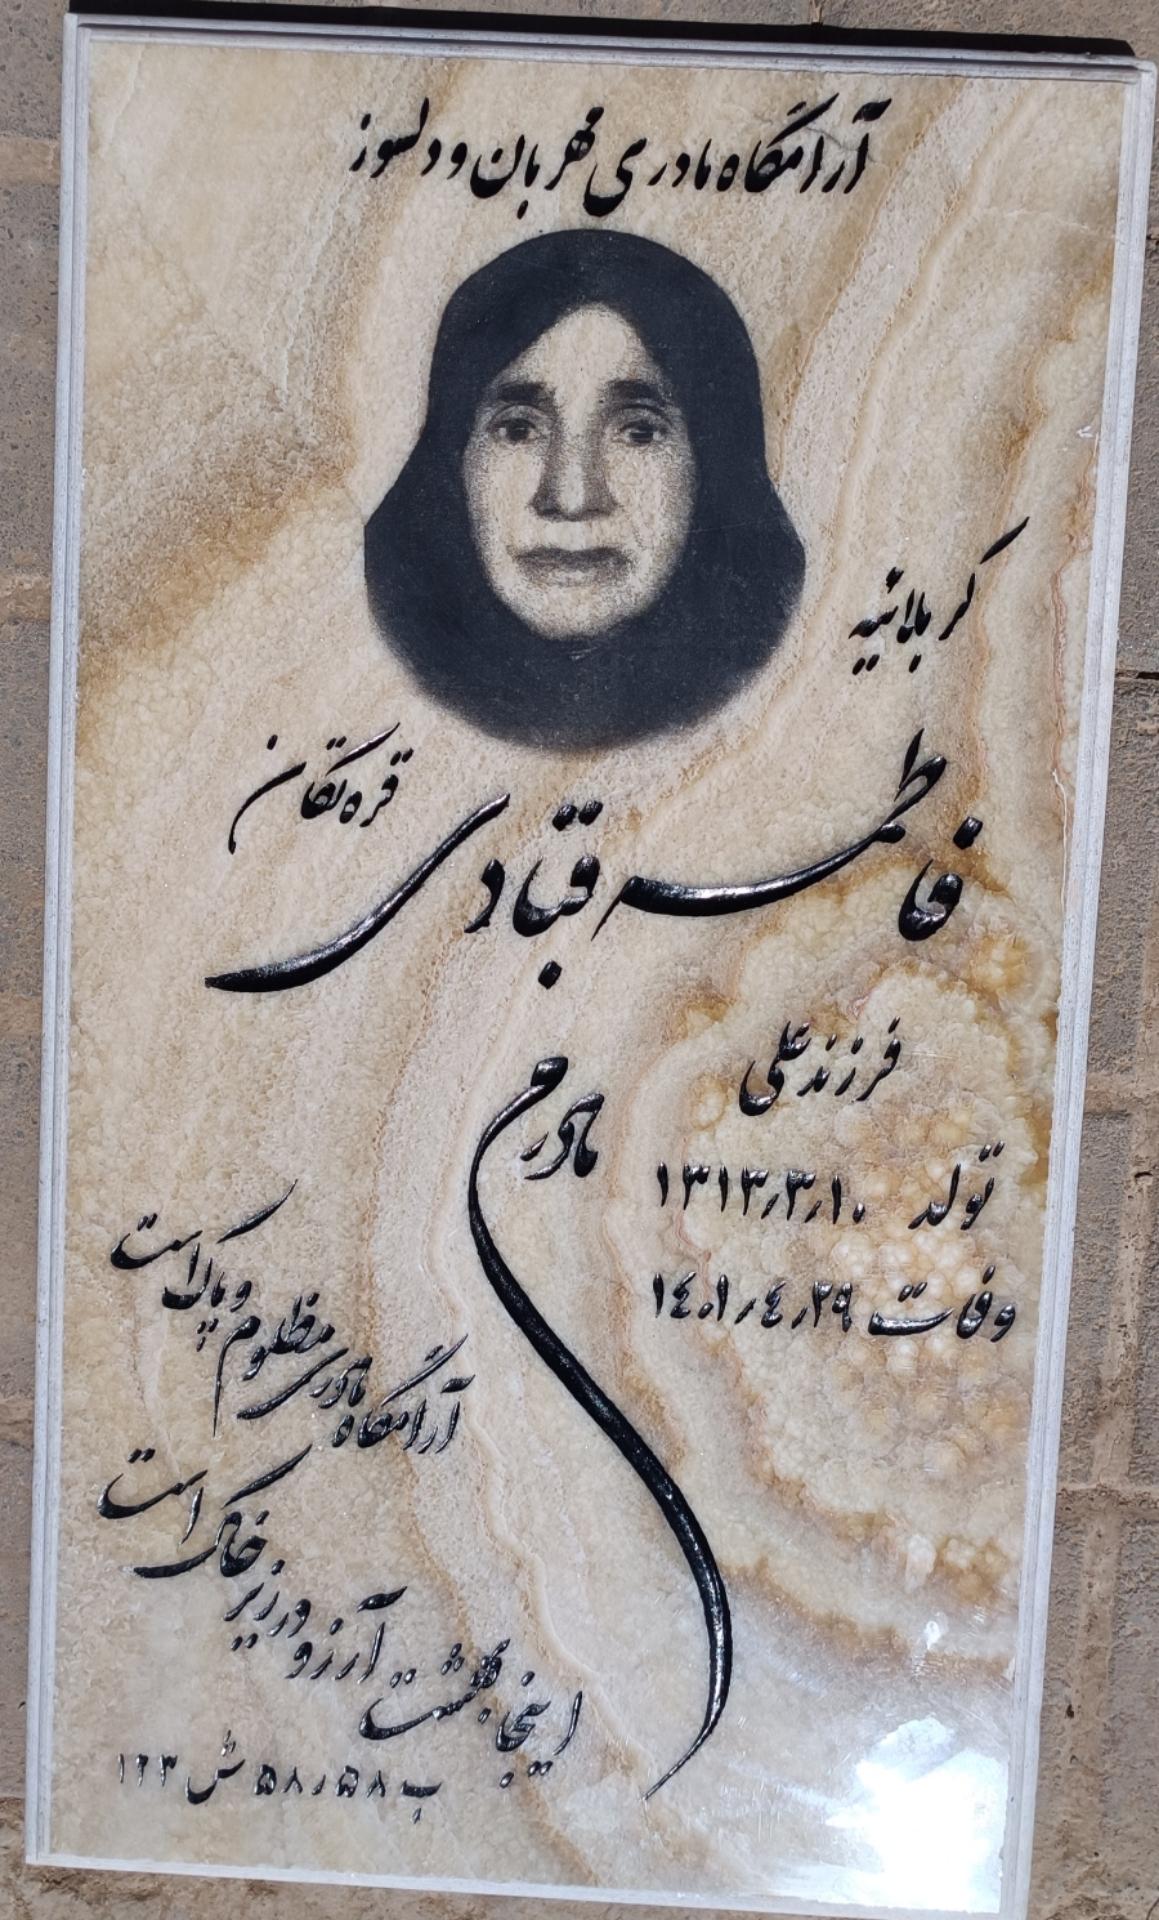 آرامگاه مادری مهربان و دلسوز
کربلائیه
فاطمه قبادی
قره تکان
فرزند علی
تولد ۱۳۱۳/۳/۱۰
وفات ۱٤۰۱/٤/۲۹
مادرم
آرامگاه مادری مظلوم و پاک است
اینجا بهشت آرزو در زیر خاک است
ب ۵۸/۵۸ ش ۱۲۳